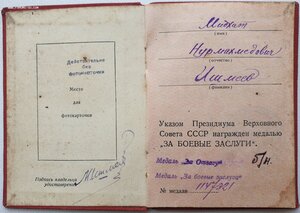 Действительно
без
фотокарточки
Место
для
фотокарточки
Подпись владельца
удостоверения
Мидхат
(имя)
Нурмахмедович
(отчество)
Ишмеев
(фамилия)
Указом Президиума Верховного
Совета СССР награжден медалью
„ЗА БОЕВЫЕ ЗАСЛУГИ".
Медаль „За Отвагу"
Медаль „За боевые заслуги"
№ медали